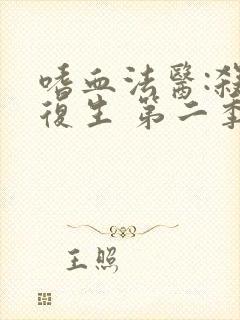 嗜血法醫:殺
復生 第二季
王照